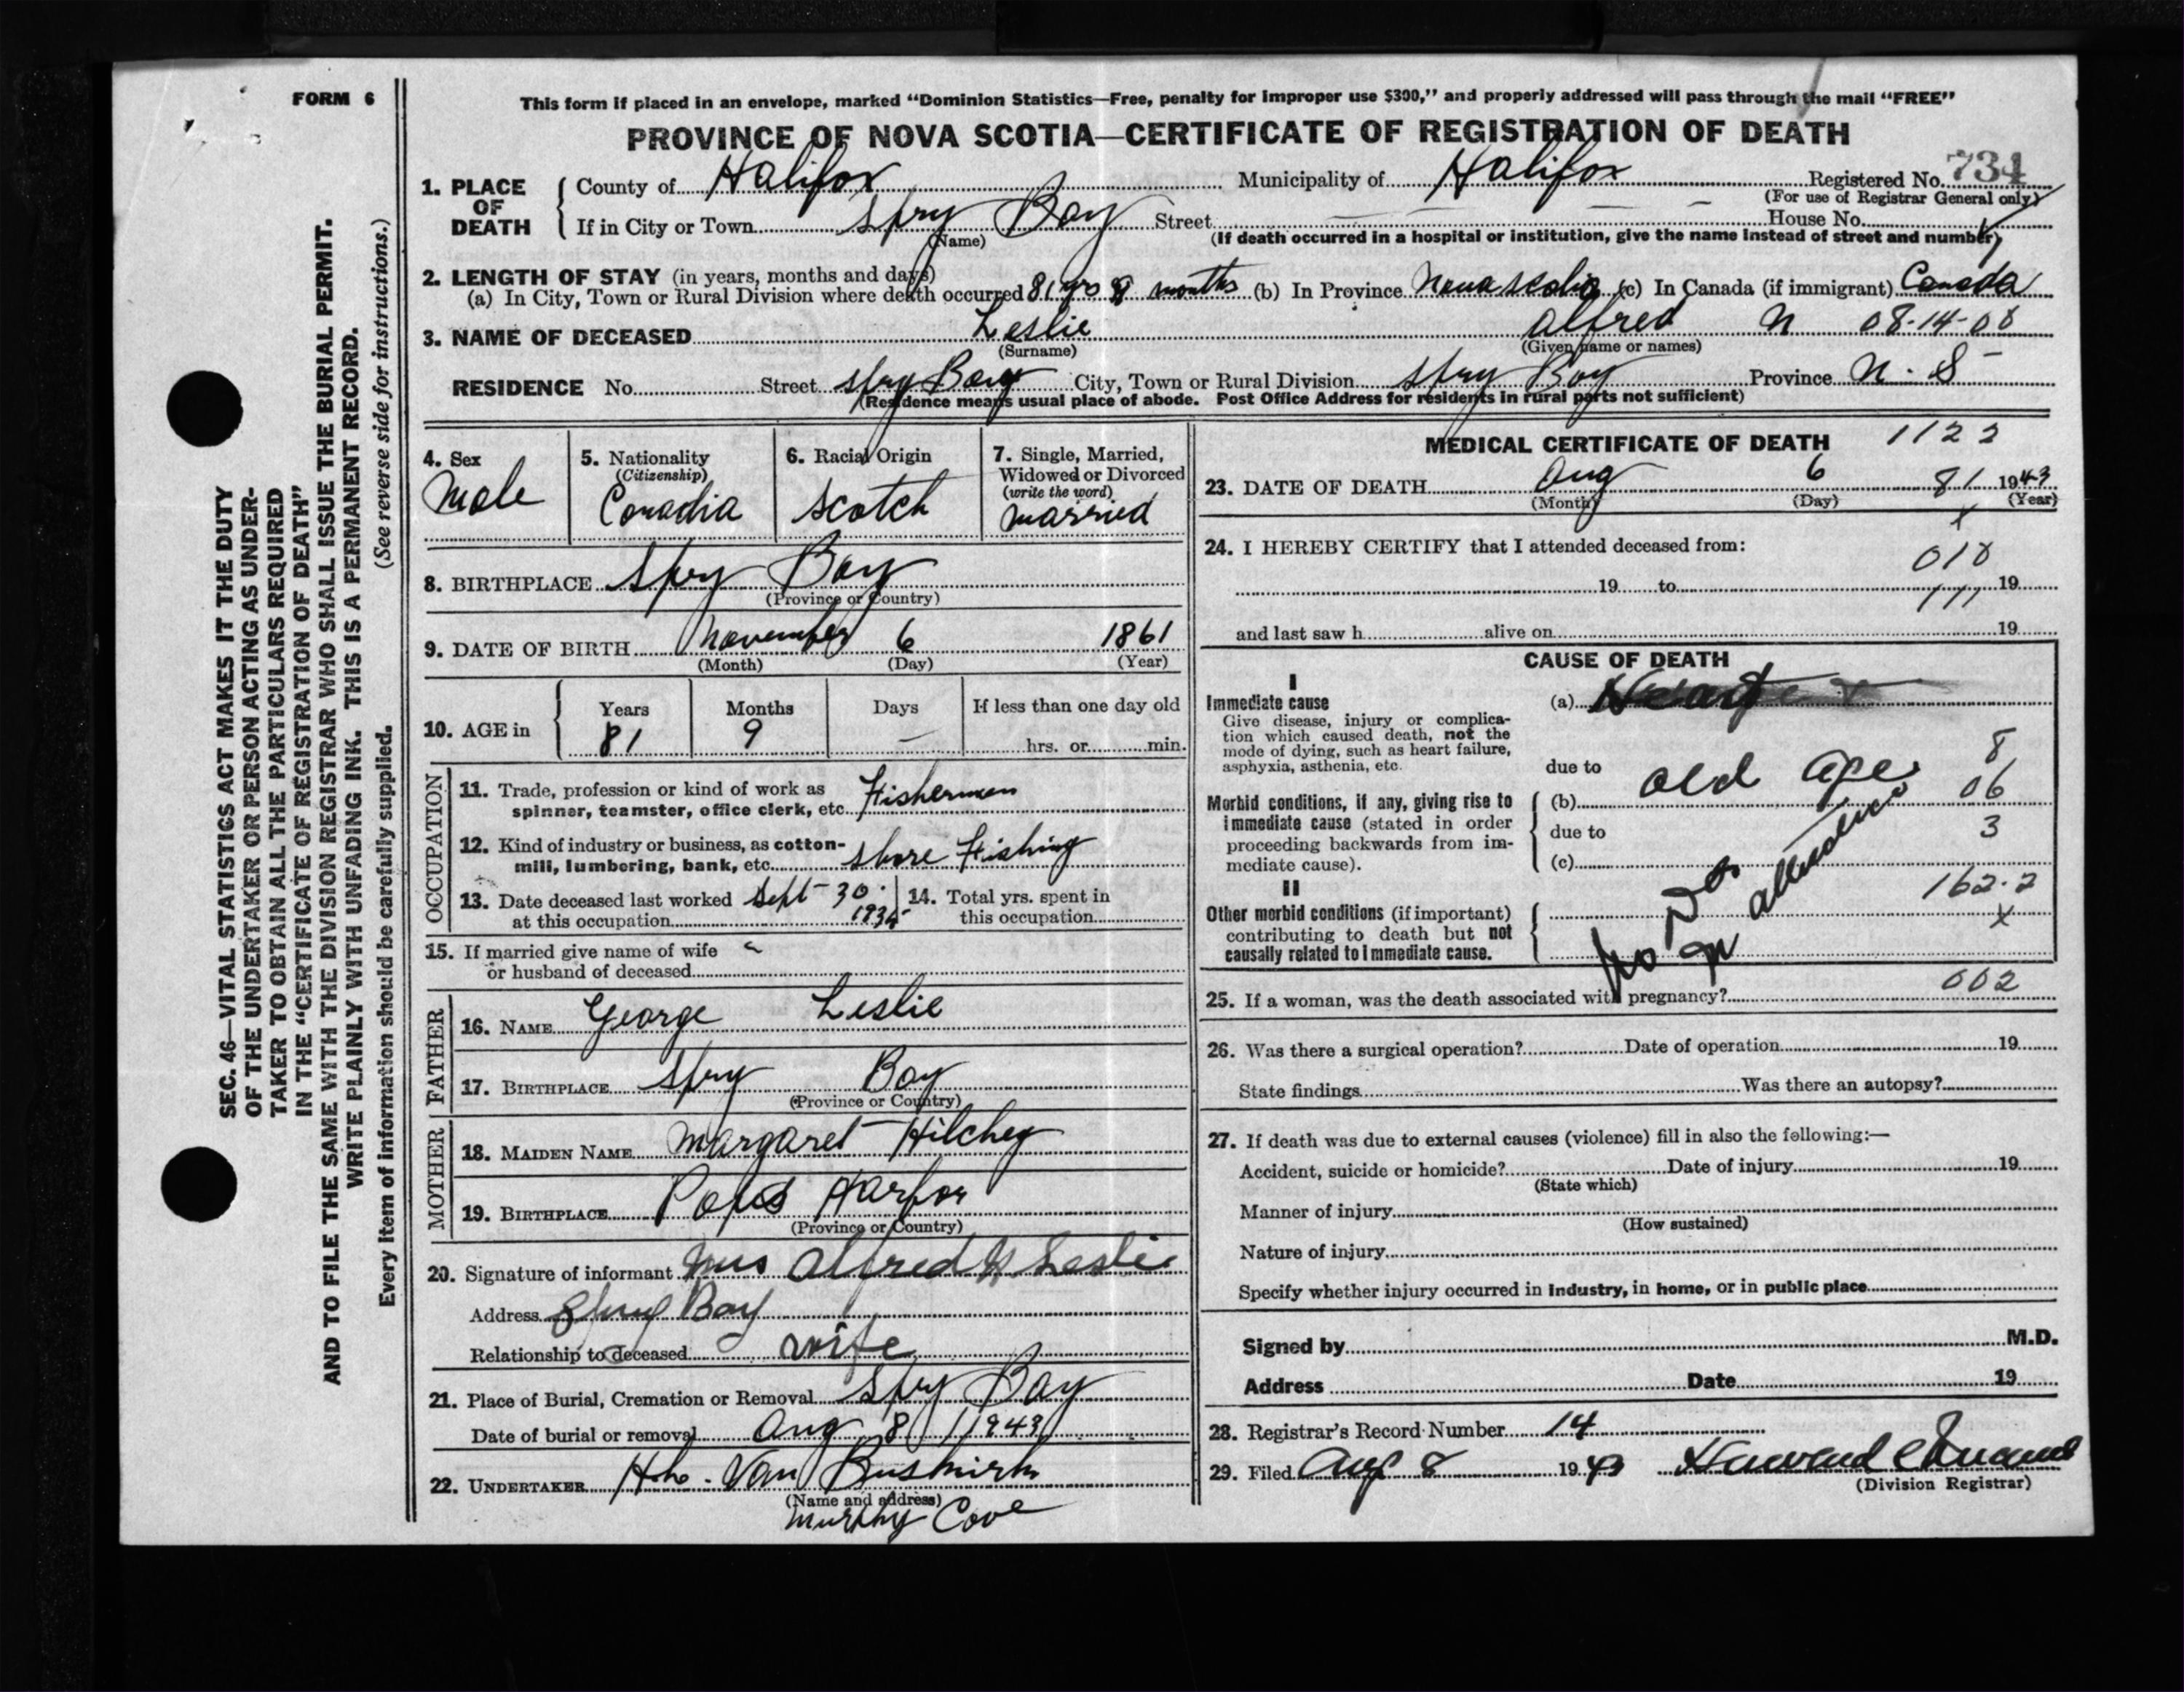 FORM 6
This form if placed in an envelope, marked “Dominion Statistics—Free, penalty for improper use $300,” and properly addressed will pass through the mail “FREE”
PROVINCE OF NOVA SCOTIA—CERTIFICATE OF REGISTRATION OF DEATH
SEC. 46—VITAL STATISTICS ACT MAKES IT THE DUTY
OF THE UNDERTAKER OR PERSON ACTING AS UNDER-
TAKER TO OBTAIN ALL THE PARTICULARS REQUIRED
IN THE “CERTIFICATE OF REGISTRATION OF DEATH”
AND TO FILE THE SAME WITH THE DIVISION REGISTRAR WHO SHALL ISSUE THE BURIAL PERMIT.
WRITE PLAINLY WITH UNFADING INK. THIS IS A PERMANENT RECORD.
Every item of information should be carefully supplied. (See reverse side for instructions.)
1. PLACE OF DEATH
County of Halifax Municipality of Halifax Registered No. 734
(For use of Registrar General only)
If in City or Town Spry Bay Street — — — House No.
(Name) (If death occurred in a hospital or institution, give the name instead of street and number)
2. LENGTH OF STAY (in years, months and days)
(a) In City, Town or Rural Division where death occurred 81 yrs 9 months (b) In Province Nova Scotia (c) In Canada (if immigrant) Canada
3. NAME OF DECEASED Leslie Alfred N 08-14-08
(Surname) (Given name or names)
RESIDENCE No. Street Spry Bay City, Town or Rural Division Spry Bay Province N. S
(Residence means usual place of abode. Post Office Address for residents in rural parts not sufficient)
4. Sex
Male
5. Nationality
(Citizenship)
Canadia
6. Racial Origin
Scotch
7. Single, Married,
Widowed or Divorced
(write the word)
married
8. BIRTHPLACE Spry Bay
(Province or Country)
9. DATE OF BIRTH November 6 1861
(Month) (Day) (Year)
10. AGE in
Years Months Days If less than one day old
81 9 — hrs. or min.
OCCUPATION
11. Trade, profession or kind of work as
spinner, teamster, office clerk, etc. Fisherman
12. Kind of industry or business, as cotton-
mill, lumbering, bank, etc. Shore Fishing
13. Date deceased last worked Sept 30
at this occupation 1935
14. Total yrs. spent in
this occupation
15. If married give name of wife
or husband of deceased
FATHER
16. NAME George Leslie
17. BIRTHPLACE Spry Bay
(Province or Country)
MOTHER
18. MAIDEN NAME Margaret Hilchey
19. BIRTHPLACE Popes Harbor
(Province or Country)
20. Signature of informant Mrs Alfred N Leslie
Address Spry Bay
Relationship to deceased wife
21. Place of Burial, Cremation or Removal Spry Bay
Date of burial or removal Aug 8 1943
22. UNDERTAKER Van Buskirk
(Name and address)
Murphy Cove
MEDICAL CERTIFICATE OF DEATH 1122
23. DATE OF DEATH Aug 6 81 1943
(Month) (Day) (Year)
x
24. I HEREBY CERTIFY that I attended deceased from:
018
19 to 19
111
and last saw h alive on 19
CAUSE OF DEATH
I
Immediate cause
Give disease, injury or complica-
tion which caused death, not the
mode of dying, such as heart failure,
asphyxia, asthenia, etc.
(a) Heart
due to
Morbid conditions, if any, giving rise to
immediate cause (stated in order
proceeding backwards from im-
mediate cause).
(b) old age
due to
(c)
8
06
3
162.2
x
No Dr
in attendance
II
Other morbid conditions (if important)
contributing to death but not
causally related to immediate cause.
25. If a woman, was the death associated with pregnancy? 002
26. Was there a surgical operation? Date of operation 19
State findings Was there an autopsy?
27. If death was due to external causes (violence) fill in also the following:—
Accident, suicide or homicide? Date of injury 19
(State which)
Manner of injury
(How sustained)
Nature of injury
Specify whether injury occurred in industry, in home, or in public place
Signed by M.D.
Address Date 19
28. Registrar's Record Number 14
29. Filed Aug 8 1943
(Division Registrar)